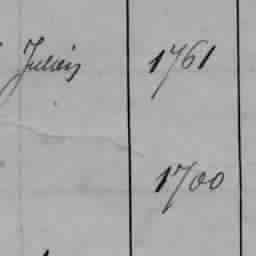 Julien 1761
1700